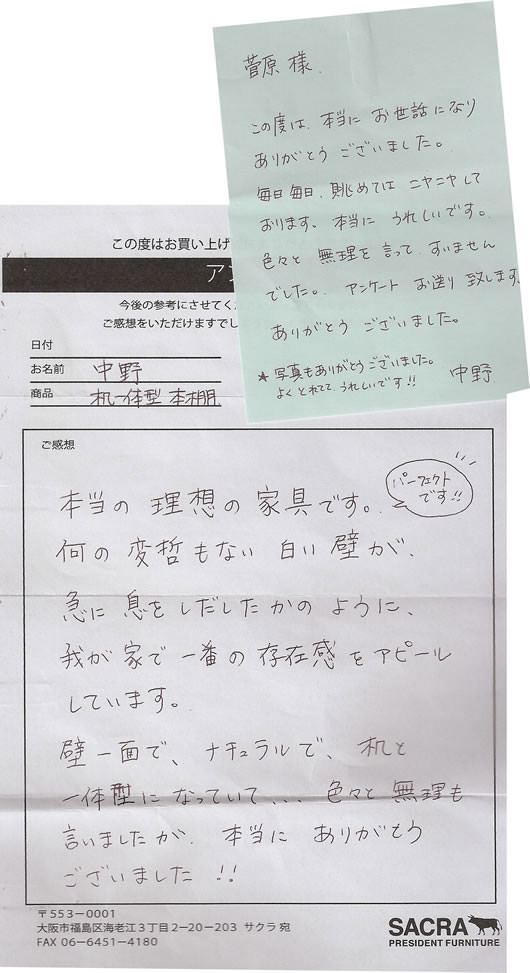 菅原様
この度は、本当にお世話になり
ありがとうございました。
毎日毎日、眺めてはニヤニヤして
おります。本当にうれしいです。
色々と無理を言って、すいません
でした。アンケートお送り致します。
ありがとうございました。
★写真もありがとうございました。
よくとれてて、うれしいです!!
中野
この度はお買い上げ
アン
今後の参考にさせてく
ご感想をいただけますでし
日付
お名前 中野
商品 机一体型本棚
ご感想
パーフェクト
です!!
本当の理想の家具です。
何の変哲もない白い壁が、
急に息をしだしたかのように、
我が家で一番の存在感をアピール
しています。
壁一面で、ナチュラルで、机と
一体型になっていて... 色々と無理も
言いましたが、本当にありがとう
ございました!!
〒553-0001
大阪市福島区海老江3丁目2-20-203 サクラ宛
FAX 06-6451-4180
SACRA
PRESIDENT FURNITURE